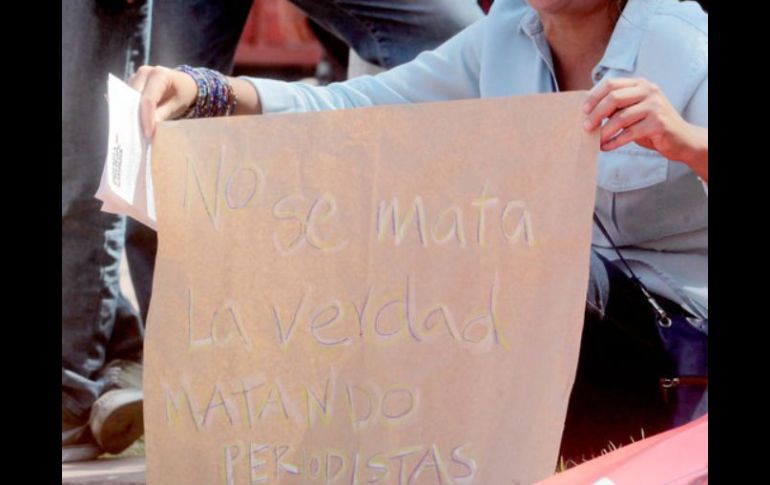 No se mata
La verdad
MATANDO
PERIODISTAS